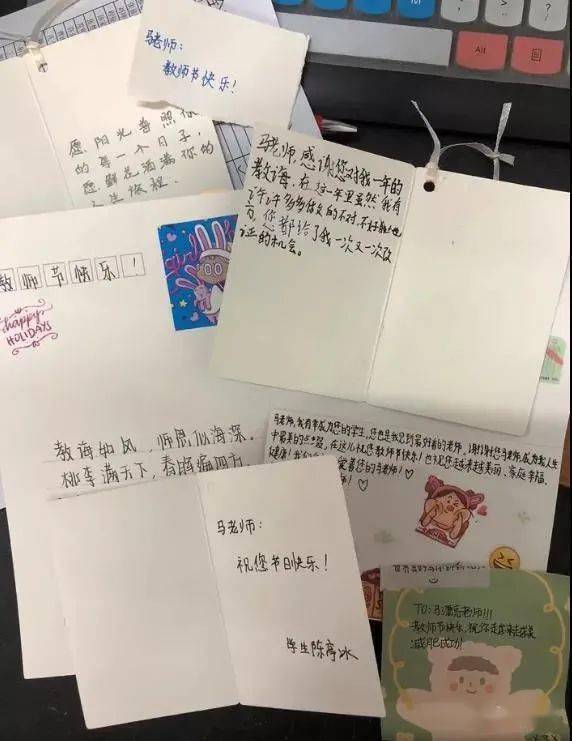 马老师：
教师节快乐！
愿阳光普照你
的每一个日子，
愿鲜花洒满你的
人生旅程.
马老师感谢您对我一年的
教诲.在这一年里虽然我有
许许多多做的不对,不好的地
方,您都给了我一次又一次改
正的机会。
教师节快乐！
happy
HOLIDAYS
教诲如风，师恩似海深。
桃李满天下，春晖遍四方
马老师,我有幸成为您的学生,您也是我见到最好看的老师,谢谢您马老师,成为我人生
中最美的点缀,在这儿祝您教师节快乐!也祝您越来越美丽、家庭幸福、
健康!
爱着您的马老师!
马老师：
祝您节日快乐！
学生陈亭冰
TO:马漂亮老师!!!
教师节快乐,祝你越来越美
减肥成功!
Alt